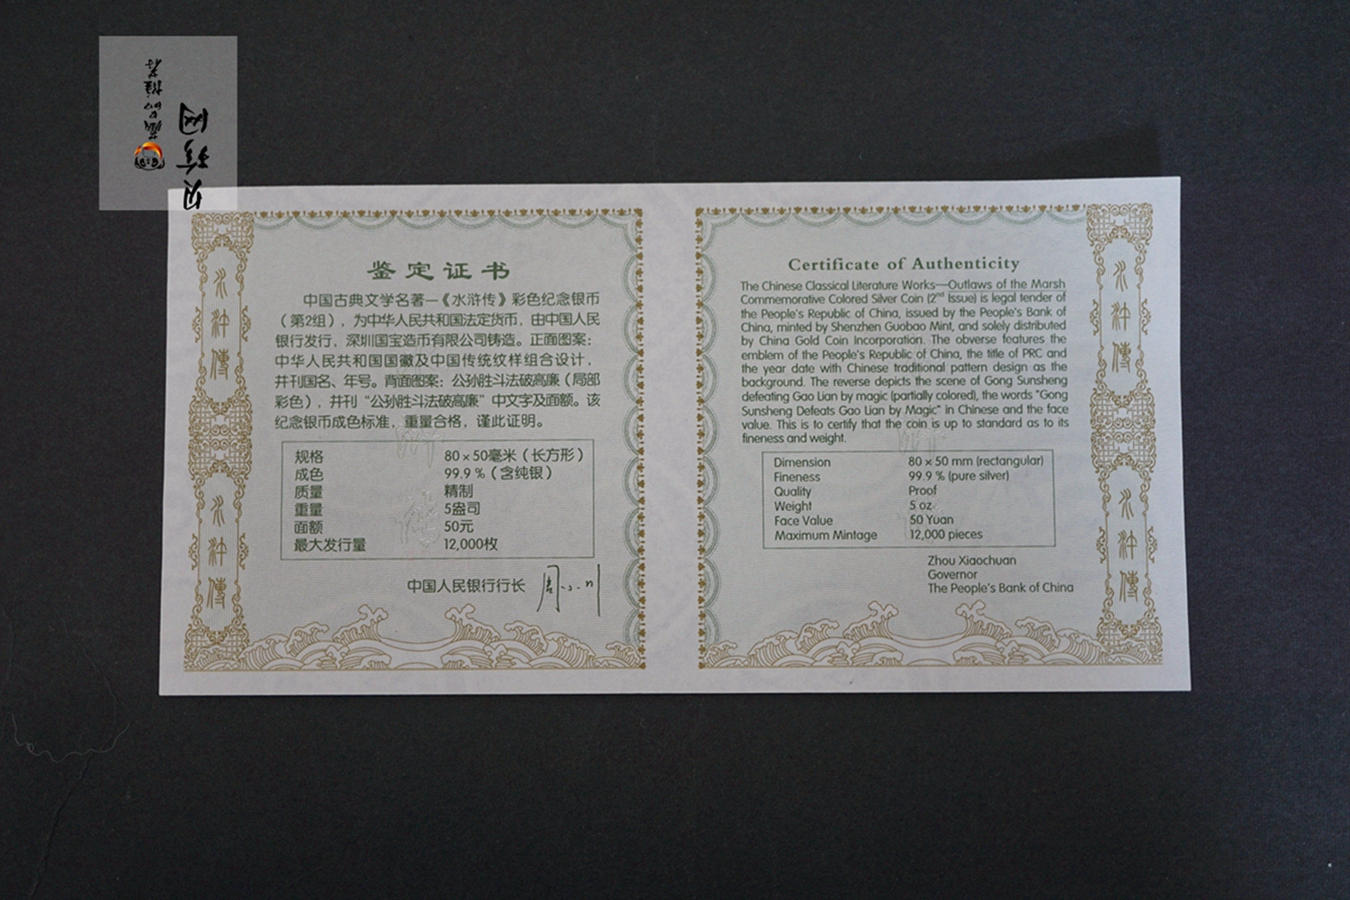 鉴定证书
中国古典文学名著—《水浒传》彩色纪念银币
（第2组），为中华人民共和国法定货币，由中国人民
银行发行，深圳国宝造币有限公司铸造。正面图案：
中华人民共和国国徽及中国传统纹样组合设计，
并刊国名、年号。背面图案：公孙胜斗法破高廉（局部
彩色），并刊“公孙胜斗法破高廉”中文字及面额。该
纪念银币成色标准，重量合格，谨此证明。
规格 80×50毫米（长方形）
成色 99.9％（含纯银）
质量 精制
重量 5盎司
面额 50元
最大发行量 12,000枚
中国人民银行行长
水浒傳
水浒傳
Certificate of Authenticity
The Chinese Classical Literature Works—Outlaws of the Marsh
Commemorative Colored Silver Coin (2nd Issue) is legal tender of
the People's Republic of China, issued by the People's Bank of
China, minted by Shenzhen Guobao Mint, and solely distributed
by China Gold Coin Incorporation. The obverse features the
emblem of the People's Republic of China, the title of PRC and
the year date with Chinese traditional pattern design as the
background. The reverse depicts the scene of Gong Sunsheng
defeating Gao Lian by magic (partially colored), the words "Gong
Sunsheng Defeats Gao Lian by Magic" in Chinese and the face
value. This is to certify that the coin is up to standard as to its
fineness and weight.
Dimension 80 × 50 mm (rectangular)
Fineness 99.9 % (pure silver)
Quality Proof
Weight 5 oz
Face Value 50 Yuan
Maximum Mintage 12,000 pieces
Zhou Xiaochuan
Governor
The People's Bank of China
水浒傳
水浒傳
贝珍网
藏品师推荐